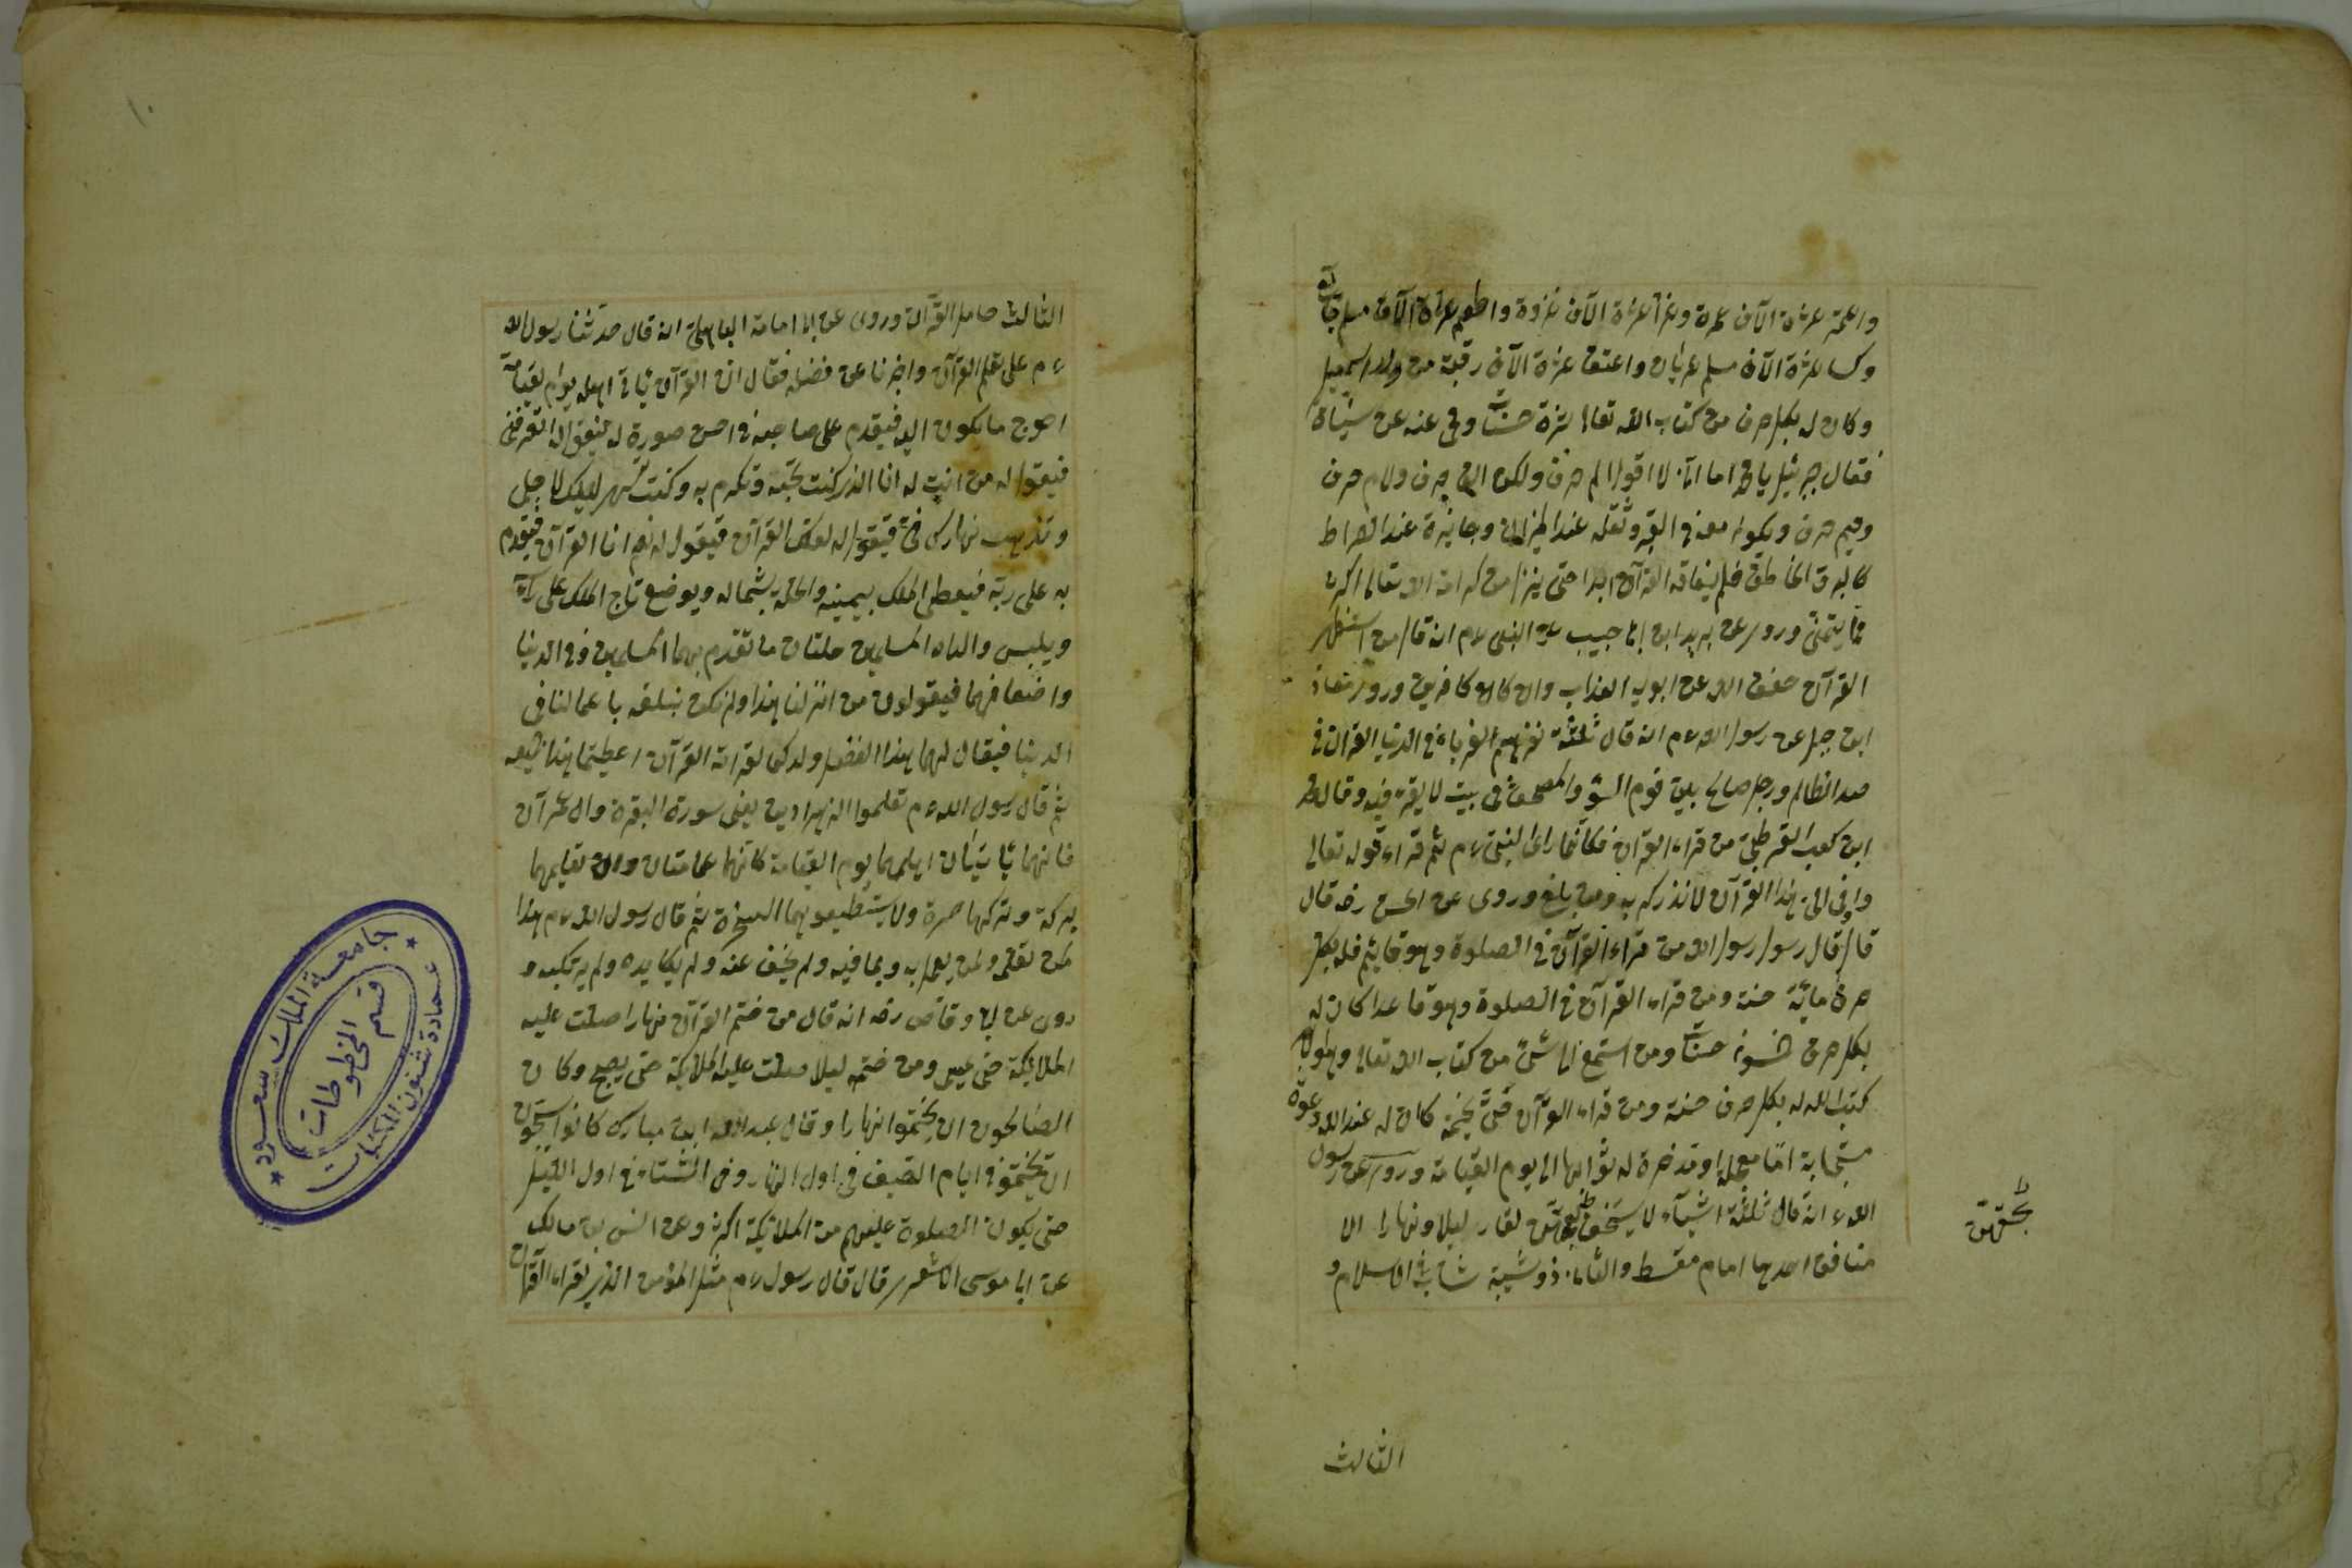 واعتمر عشرة الآف عمرة وغزا عشرة الآف غزوة واطعم عشرة الآف مسلم جائع
وكسا عشرة الآف مسلم عريان واعتق عشرة الآف رقبة من ولد اسمعيل
وكان له بكل حرف من كتاب الله تعالى عشرة حسنات ومحى عنه عشر سيئات
فقال جبرئيل يا محمد اما انى لا اقول الم حرف ولكن الف حرف ولام حرف
وميم حرف ويكون معه فى القبر وثقله عند الميزان وجايزة عند الصراط
كالبرق الخاطف فلم يفارقه القرآن ابدا حتى ينزل من كرامة الله تعالى اكثر
مما يتمنى وروى عن يزيد ابن ابى حبيب عن النبى ءم انه قال من استظهر
القرآن خفف الله عن ابويه العذاب وان كانا كافرين وروى معاذ
ابن جبل عن رسول الله ءم انه قال ثلثة نفر هم الغرباء فى الدنيا القرآن فى
صدر الظالم ورجل صالح بين قوم السوء والمصحف فى بيت لا يقرء فيه وقال محمد
ابن كعب القرظى من قراء القرآن فكانما راى النبى ءم ثم قراء قوله تعالى
واوحى الى هذا القرآن لانذركم به ومن بلغ وروى عن الحسن رضه قال
قال قال رسول رسول الله من قراء القرآن فى الصلوة وهو قايم فله بكل
حرف ماية حسنة ومن قراء القرآن فى الصلوة وهو قاعدا كان له
بكل حرف خمسون حسنات ومن استمع الى شئ من كتاب الله تعالى
كتب الله له بكل حرف حسنة ومن قراء القرآن حتى يختمه كان له عند الله دعوة
مستجابة اما معجلة او مدخرة له ثوابها الى يوم القيامة وروى عن رسول
الله ء انه قال ثلثة اشياء لا يستخف بحقهن ليلا ونهارا الا
منافق احدها امام مقسط والثانى ذو شيبة شاب فى الاسلام و
بحقهن
الثالث
١٠
الثالث حامل القرآن وروى عن ابى امامة الباهلى انه قال حدثنا رسول الله
ءم على تعلم القرآن واخبرنا عن فضله فقال ان القرآن ياتى اهله يوم القيامة
احوج ما يكون اليه فيقدم على صاحبه فى احسن صورة له فيقول له اتعرفنى
فيقول له من انت له انا الذى كنت تحبه وتكرم به وكنت تسهر ليلك لاجلى
وتذهب نهارك فى فيقول له لعلك القرآن فيقول له نعم انا القرآن فيقدم
به على ربه فيعطى الملك بيمينه والخلد بشماله ويوضع تاج الملك على راسه
ويلبس والداه المسلمين حلتان ما تقدم بهما المسلمين فى الدنيا
واضعافهما فيقولون من اين لنا هذا ولم نكن نبلغه باعمالنا فى
الدنيا فيقال لهما هذا الفضل ولدكما لقراة القرآن اعطيتما هذا جميعه
ثم قال رسول الله ءم تعلموا الزهراوين يعنى سورة البقرة وال عمرآن
فانهما ياتيان اهلهما يوم القيامة كانهما غمامتان وان تعليمهما
بركة وتركها حسرة ولا يستطيعونهما السحرة ثم قال رسول الله ءم هذا
لمن تعلم ولمن يعمل به وبما فيه ولم يخف عنه ولم يكايده ولم يرتكبه و
روى عن ابى وقاص رضه انه قال من ختم القرآن نهارا صلت عليه
الملائكة حتى يمسى ومن ختمه ليلا صلت عليه الملائكة حتى يصبح وكان
الصالحون ان يختموا نهارا وقال عبد الله ابن مبارك كانوا يستحبون
ان يختموا فى ايام الصيف فى اول النهار وفى الشتاء فى اول الليل
حتى يكون الصلوة عليهم من الملائكة اكثر وعن انس بن مالك
عن ابا موسى الاشعرى قال قال رسول ءم مثل المؤمن الذى يقراء القرآن
جامعة الملك سعود
قسم المخطوطات
عمادة شئون المكتبات